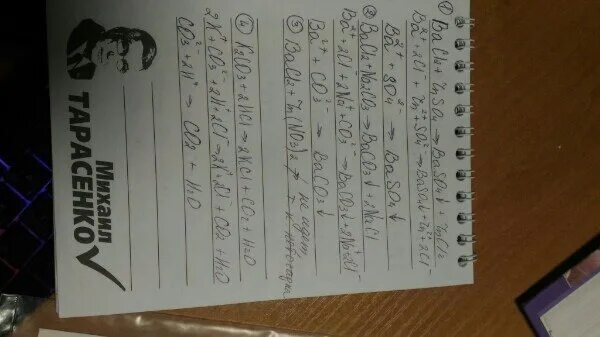 ① BaCl2 + ZnSO4 → BaSO4↓ + ZnCl2
Ba2+ + 2Cl- + Zn2+ + SO42- → BaSO4↓ + Zn2+ + 2Cl-
Ba2+ + SO42- → BaSO4↓
② BaCl2 + Na2CO3 → BaCO3↓ + 2NaCl
Ba2+ + 2Cl- + 2Na+ + CO32- → BaCO3↓ + 2Na+ 2Cl-
Ba2+ + CO32- → BaCO3↓
③ BaCl2 + Zn(NO3)2 →
④ K2CO3 + 2HCl → 2KCl + CO2 + H2O
2K+ + CO32- + 2H+ + 2Cl- → 2K+ + 2Cl- + CO2 + H2O
CO32- + 2H+ → CO2 + H2O
Михаил
ТАРАСЕНКО